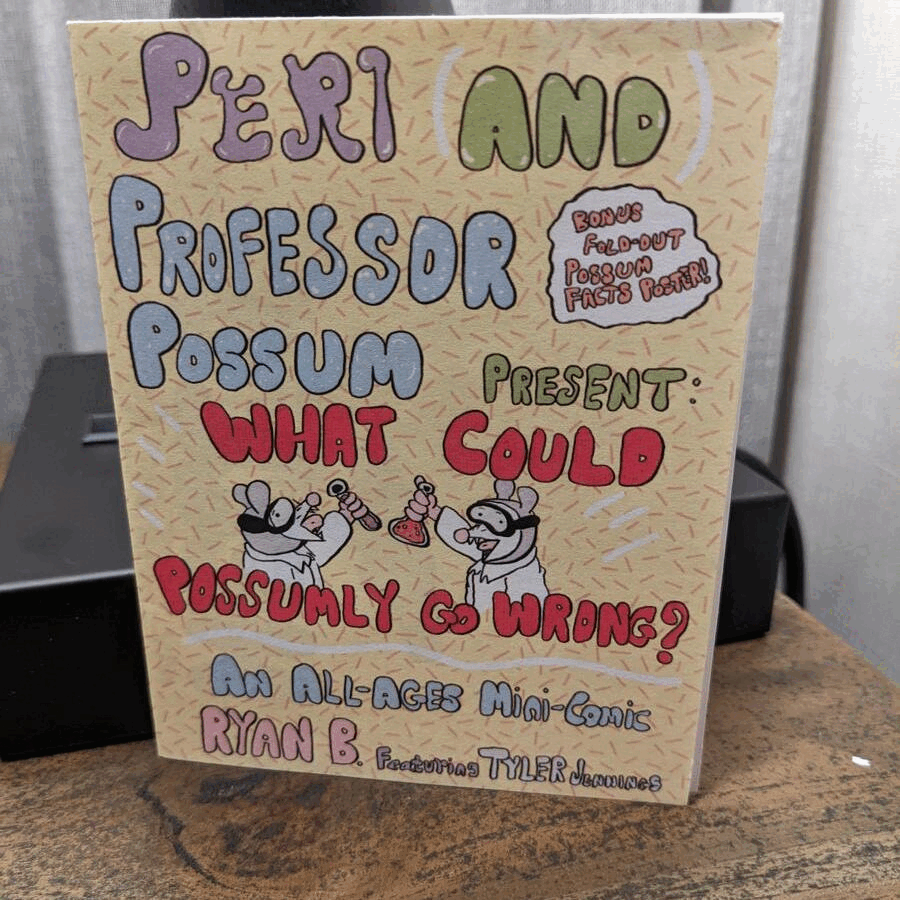 PERI (AND)
PROFESSOR
POSSUM
BONUS
FOLD-OUT
POSSUM
FACTS POSTER!
PRESENT:
WHAT COULD
POSSUMLY GO WRONG?
AN ALL-AGES MiNi-COMiC
RYAN B. FEATURING TYLER JENNINGS